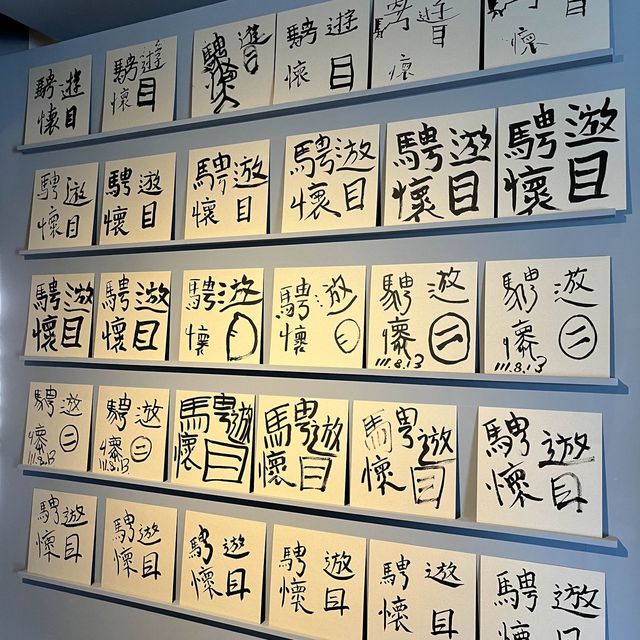 遊目
騁懷
遊目
騁懷
遊目
騁懷
遊目
騁懷
遊目
騁懷
目
懷
遊目
騁懷
遊目
騁懷
遊目
騁懷
遊目
騁懷
遊目
騁懷
遊目
騁懷
遊目
騁懷
遊目
騁懷
遊目
騁懷
遊目
騁懷
遊目
騁懷
111.8.13
遊目
騁懷
111.8.13
遊目
騁懷
111.8.13
遊目
騁懷
111.8.13
遊目
騁懷
遊目
騁懷
遊目
騁懷
遊目
騁懷
遊目
騁懷
遊目
騁懷
遊目
騁懷
遊目
騁懷
遊目
騁懷
遊目
騁懷